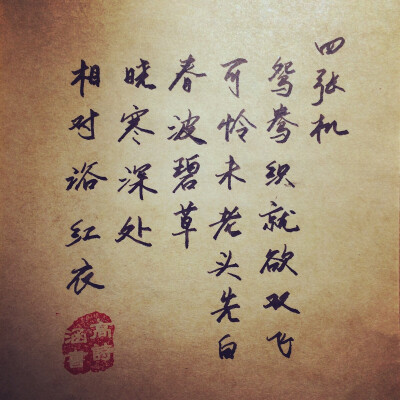 四张机
鸳鸯织就欲双飞
可怜未老头先白
春波碧草
晓寒深处
相对浴红衣